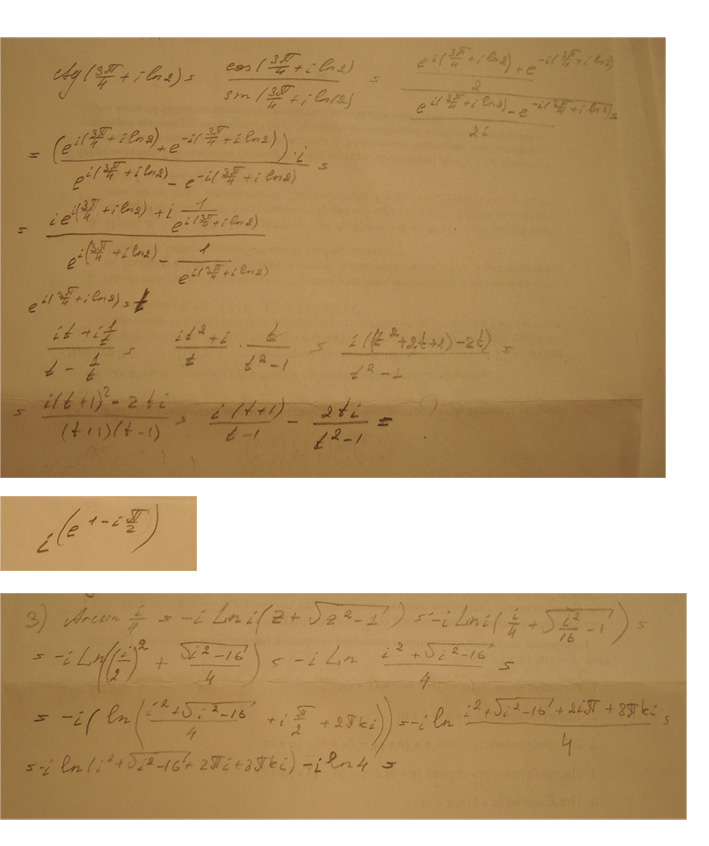 ctg(3π/4 + i ln2) = cos(3π/4 + i ln2) / sin(3π/4 + i ln(2)) = ((e^{i(3π/4 + i ln2)} + e^{-i(3π/4 + i ln2)}) / 2) / ((e^{i(3π/4 + i ln2)} - e^{-i(3π/4 + i ln2)}) / 2i) =
= ((e^{i(3π/4 + i ln2)} + e^{-i(3π/4 + i ln2)}) · i) / (e^{i(3π/4 + i ln2)} - e^{-i(3π/4 + i ln2)}) =
= (i e^{i(3π/4 + i ln2)} + i 1/e^{i(3π/4 + i ln2)}) / (e^{i(3π/4 + i ln2)} - 1/e^{i(3π/4 + i ln2)})
e^{i(3π/4 + i ln2)} = t
(it + i 1/t) / (t - 1/t) = (it² + i)/t · t/(t² - 1) = i((t² + 2t + 1) - 2t) / (t² - 1) =
= (i(t+1)² - 2ti) / ((t+1)(t-1)) = i(t+1)/(t-1) - 2ti/(t² - 1) =
i^(e^{1 - i π/2})
3) Arcsin i/4 = -i Ln i(z + √(z² - 1)) = -i Ln i(i/4 + √(i²/16 - 1)) =
= -i Ln((i/2)² + √(i² - 16)/4) = -i Ln (i² + √(i² - 16))/4 =
= -i(ln((i² + √(i² - 16))/4 + i π/2 + 2πki)) = -i ln (i² + √(i² - 16) + 2iπ + 8πki)/4 =
= -i ln(i² + √(i² - 16) + 2πi + 8πki) - i ln 4 =